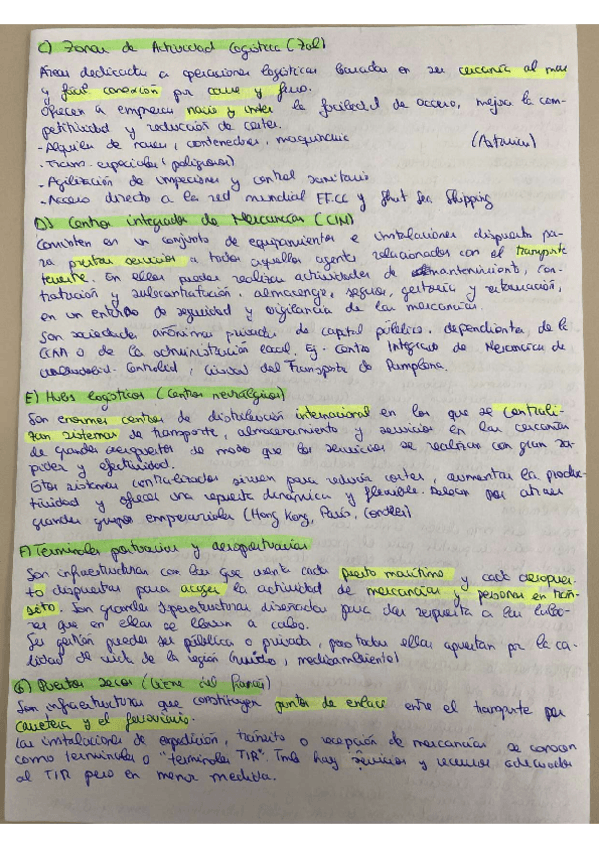 C) Zonas de Actividad Logística (Zal)
Áreas dedicadas a operaciones logísticas basadas en su cercanía al mar
y fácil conexión por carre y ferro.
Ofrecen a empresas nacio y inter la facilidad de acceso, mejora la com-
petitividad y reducción de costes.
-Alquiler de naves, contenedores, maquinaria (Portuarias)
-Trans. especiales (peligrosos)
-Agilización de inspecciones y control sanitario
-Acceso directo a la red mundial FF.CC y Short Sea Shipping
D) Centros integrados de Mercancías (CIM)
Consisten en un conjunto de equipamientos e instalaciones dispuesto pa-
ra prestar servicios a todos aquellos agentes relacionados con el transporte
terrestre. En ellos pueden realizar actividades de mantenimiento, con-
tratación y subcontratación, almacenaje, seguros, gestoría y información,
en un entorno de seguridad y vigilancia de las mercancías.
Son sociedades anónimas privadas de capital público, dependientes de la
CCAA o de la administración local. Ej. Centro Integrado de Mercancías de
Ciudad del Transporte de Pamplona.
E) Hubs logísticos (Centros neurálgicos)
Son enormes centros de distribución internacional en los que se centrali-
zan sistemas de transporte, almacenamiento y servicios en las cercanías
de grandes aeropuertos de modo que los servicios se realizan con gran ra-
pidez y efectividad.
Estos sistemas centralizados sirven para reducir costes, aumentar la produc-
tividad y ofrecer una respuesta dinámica y flexible. por atraer
grandes grupos empresariales (Hong Kong, París, Londres)
F) Terminales portuarias y aeroportuarias
Son infraestructuras con las que cuenta cada puerto marítimo y cada aeropuer-
to dispuestas para acoger la actividad de mercancías y personas en trán-
sito. Son grandes superestructuras diseñadas para dar respuesta a las labo-
res que en ellas se llevan a cabo.
Su gestión puede ser pública o privada, pero todas ellas apuestan por la ca-
lidad de vida de la región (ruido, medioambiente)
G) Puertos secos (tiene del francés)
Son infraestructuras que constituyen puntos de enlace entre el transporte por
carretera y el ferroviario.
Las instalaciones de expedición, tránsito o recepción de mercancías, se conocen
como terminales o "terminales TIR". Tmb hay servicios y recursos adecuados
al TIR pero en menor medida.